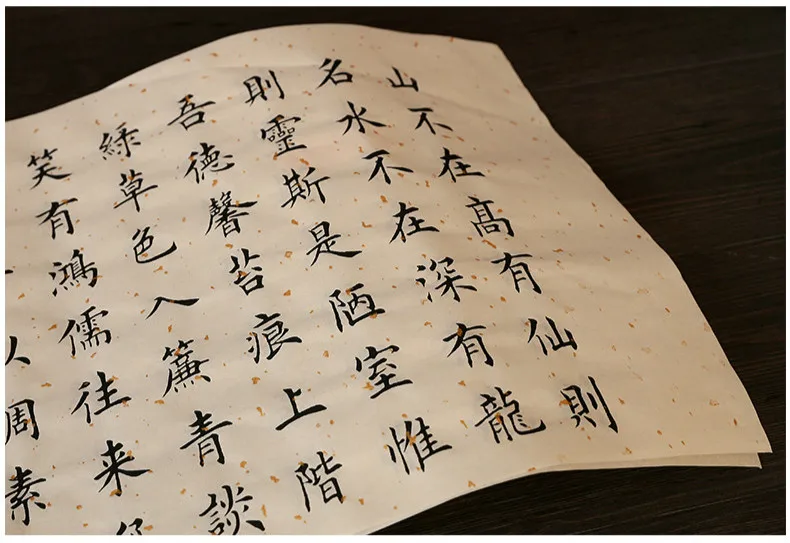 山不在髙有仙則
名水不在深有龍
則靈斯是陋室惟
吾德馨苔痕上階
綠草色入簾青談
笑有鴻儒往来
調素